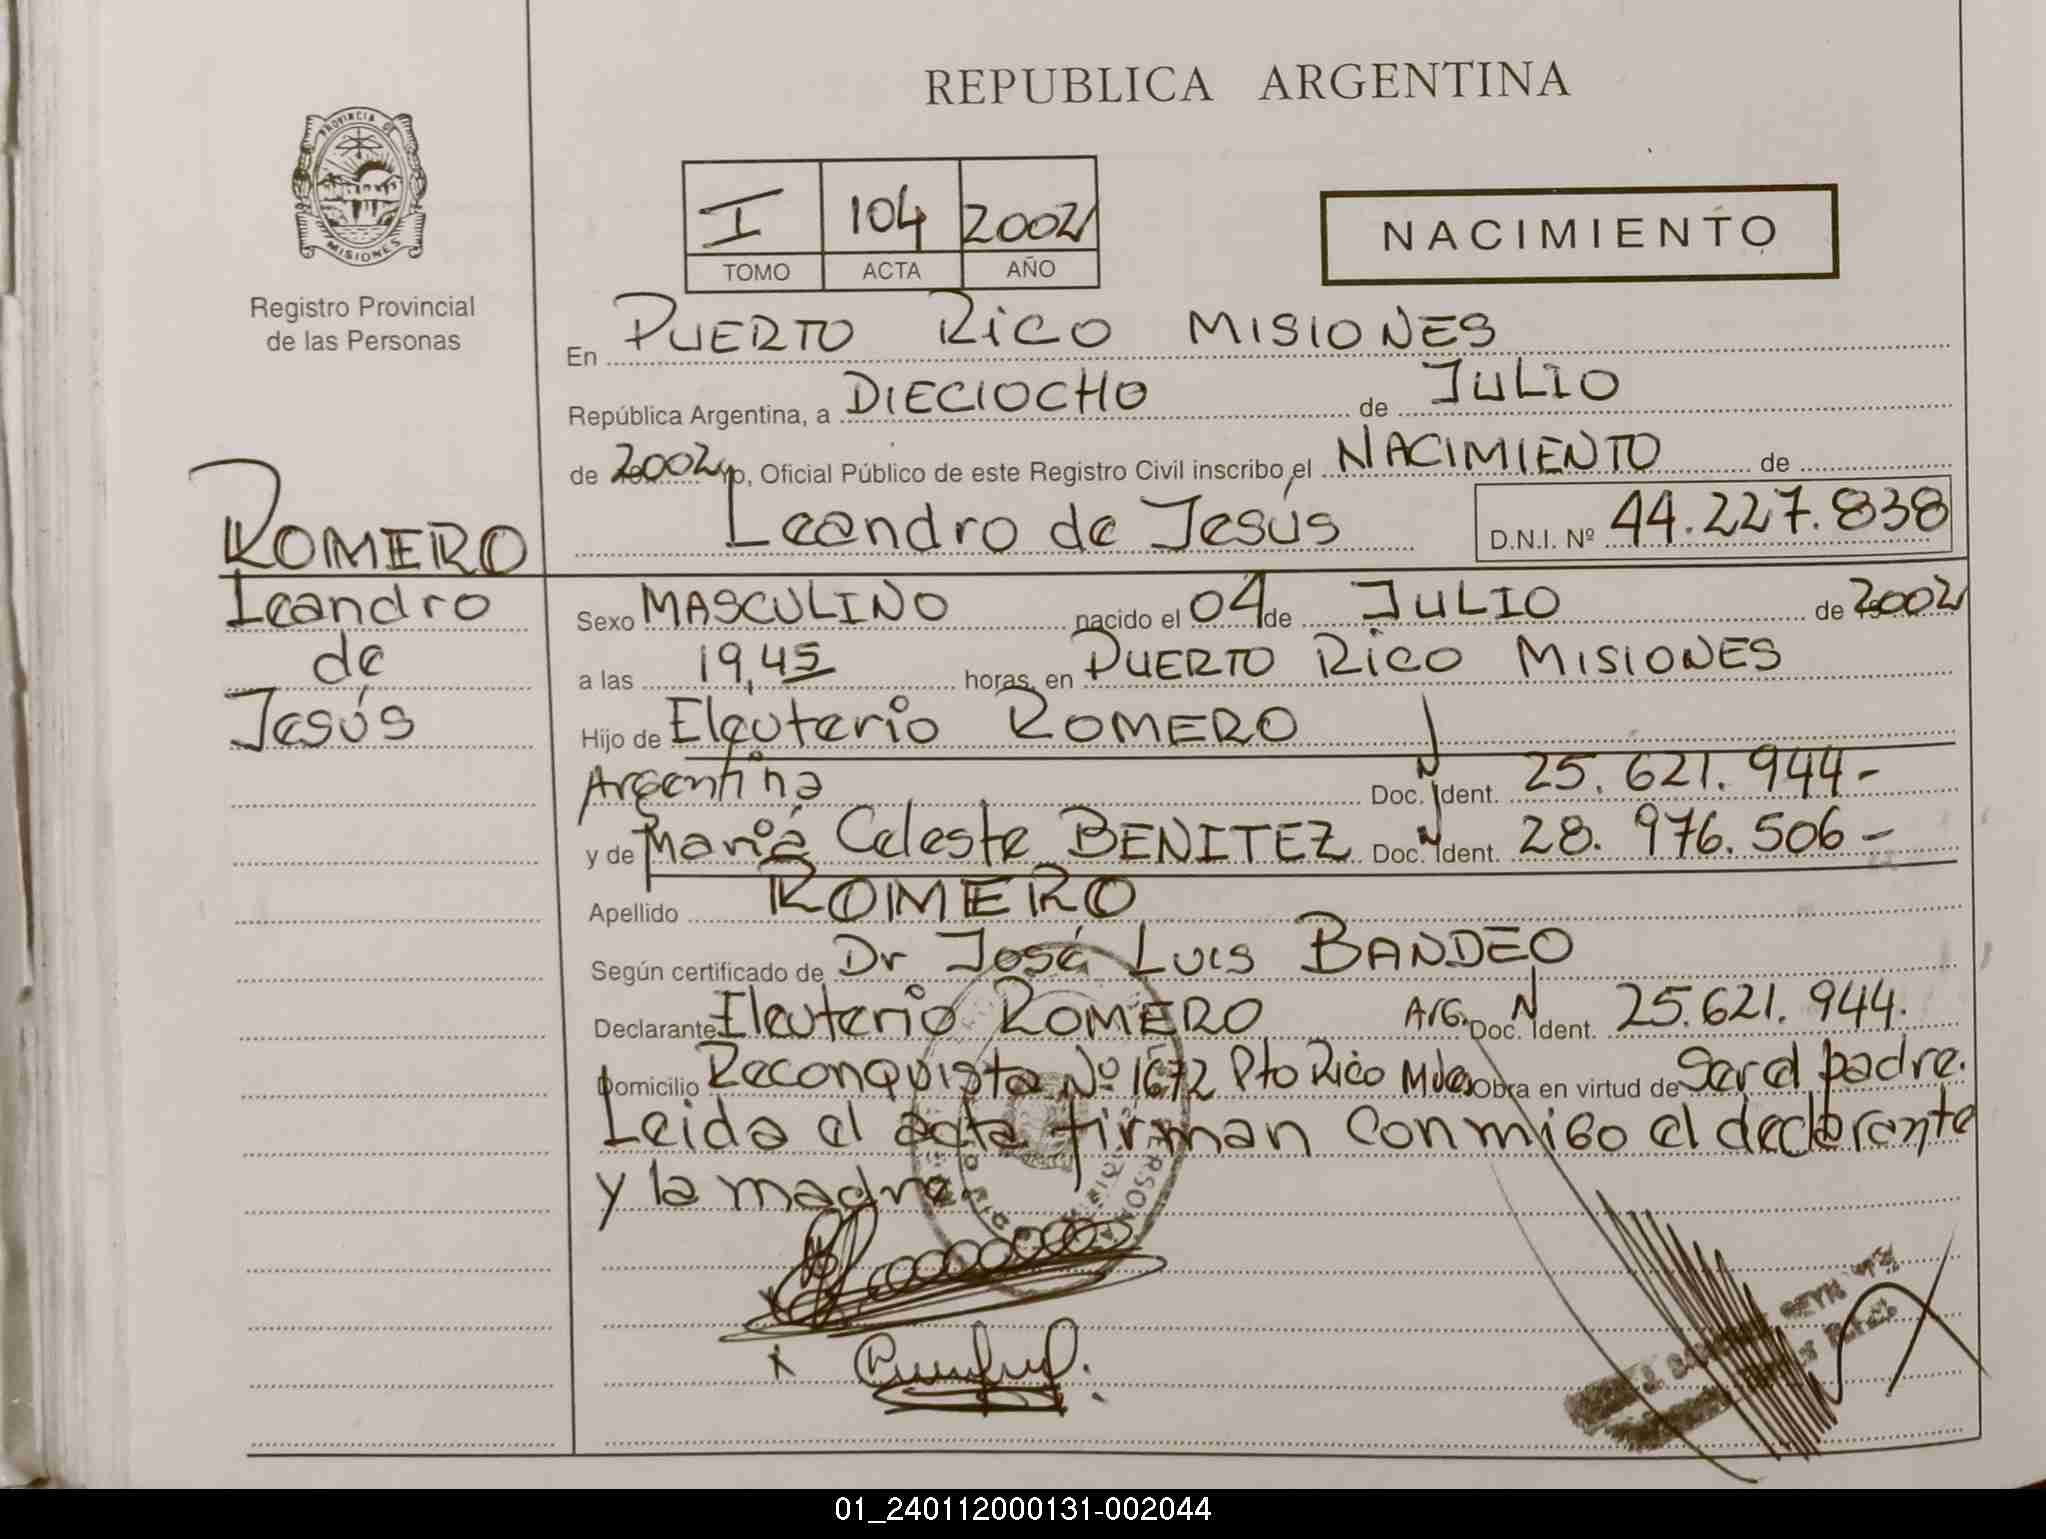 REPUBLICA ARGENTINA
PROVINCIA DE
MISIONES
Registro Provincial
de las Personas
I 104 2002
TOMO ACTA AÑO
NACIMIENTO
En PUERTO RICO MISIONES
República Argentina, a DIECIOCHO de JULIO
de 2002 yo, Oficial Público de este Registro Civil inscribo el NACIMIENTO de
Leandro de Jesús D.N.I. Nº 44.227.838
ROMERO
Leandro
de
Jesús
Sexo MASCULINO nacido el 04 de JULIO de 2002
a las 19,45 horas, en PUERTO RICO MISIONES
Hijo de Eleuterio ROMERO
Argentina Doc. Ident. 25.621.944-
y de María Celeste BENITEZ Doc. Ident. 28.976.506-
Apellido ROMERO
Según certificado de Dr José Luis BANDEO
Declarante Eleuterio ROMERO Arg. Doc. Ident. 25.621.944.
Domicilio Reconquista Nº 1672 Pto Rico Mnes Obra en virtud de Ser el padre.
Leida el acta firman conmigo el declarante
y la madre.
01_240112000131-002044